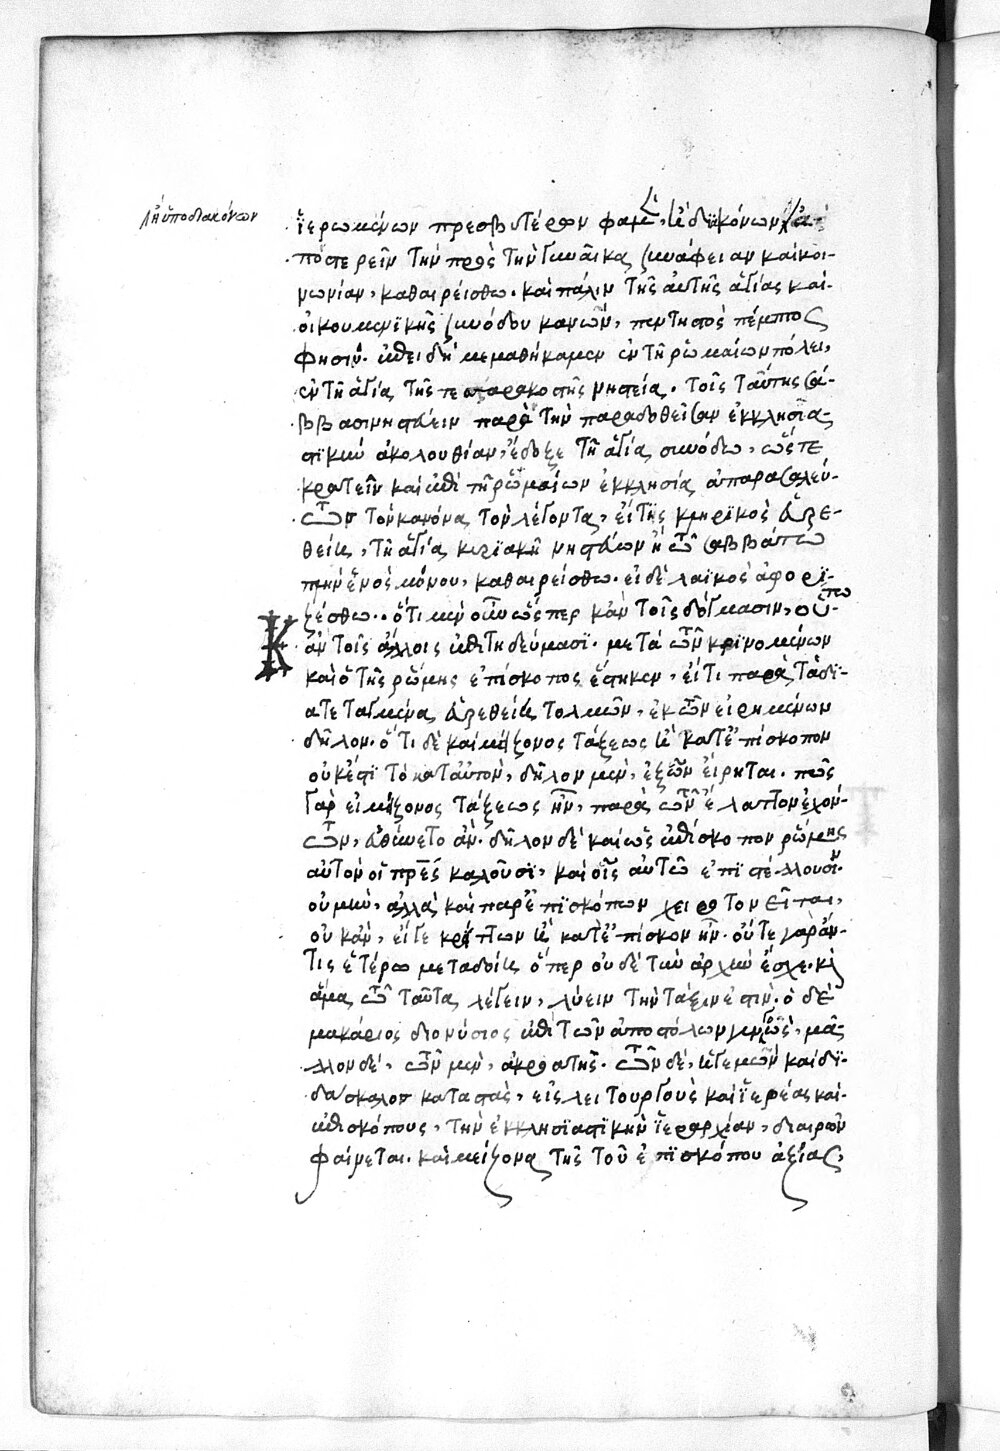 ἢ ὑποδιακόνων
ἱερωμένων πρεσβυτέρων φαμὲν, ἢ διακόνων ἀ-
ποστερεῖν τὴν πρὸς τὴν γυναῖκα συνάφειαν καὶ κοι-
νωνίαν, καθαιρείσθω. καὶ πάλιν τῆς αὐτῆς ἁγίας καὶ
οἰκουμενικῆς συνόδου κανὼν, πεντηστὸς πέμπτος
φησίν. ἐπειδὴ μεμαθήκαμεν ἐν τῇ ῥωμαίων πόλει,
ἐν τῇ ἁγίᾳ τῆς τεσσαρακοστῆς νηστείᾳ. τοῖς ταύτης σά-
ββασι νηστεύειν παρὰ τὴν παραδοθεῖσαν ἐκκλησια-
στικὴν ἀκολουθίαν, ἔδοξε τῇ ἁγίᾳ συνόδω, ὥστε
κρατεῖν καὶ ἐπὶ τῇ ῥωμαίων ἐκκλησίᾳ ἀπαρασαλεύ-
τως τὸν κανόνα τὸν λέγοντα, εἴ τις κληρικὸς εὑρε-
θείη, τῇ ἁγίᾳ κυριακῇ νηστεύων ἢ τῶ σαββάτω
πλὴν ἑνὸς μόνου, καθαιρείσθω. εἰ δὲ λαϊκὸς ἀφορι-
ζέσθω. ὅτι μὲν οὖν ὥσπερ κἀν τοῖς δόγμασιν, οὕτω
κἀν τοῖς ἄλλοις ἐπιτηδεύμασι. μετὰ τῶν κρινομένων
καὶ ὁ τῆς ῥώμης ἐπίσκοπος ἕστηκεν, εἴ τι παρὰ τὰ δι-
ατεταγμένα εὑρεθείη τολμῶν, ἐκ τῶν εἰρημένων
δῆλον. ὅτι δὲ καὶ μείζονος τάξεως ἢ κατ' ἐπίσκοπον
οὐκ ἔστι τὸ κατ' αὐτὸν, δῆλον μὲν, ἐξ ὧν εἴρηται. πῶς
γὰρ εἰ μείζονος τάξεως ἦν, παρὰ τῶν ἔλαττον ἐχόν-
των, εὐθύνετο ἄν. δῆλον δὲ καὶ ὡς ἐπίσκοπον ῥώμης
αὐτὸν οἱ πρες καλοῦσι, καὶ οἷς αὐτῶ ἐπιστέλλουσιν.
οὐ μὴν, ἀλλὰ καὶ παρ' ἐπισκόπων χειροτονεῖται,
οὐκ ἂν, εἴγε κρείττων ἢ κατ' ἐπίσκοπον ἦν. οὔτε γὰρ ἄν-
τις ἑτέρω μεταδοίη ὅπερ οὐδὲ τὴν ἀρχὴν ἔσχε. καὶ
ἅμα τῶ ταῦτα λέγειν, λύειν τὴν τάξιν ἐστίν. ὁ δὲ
μακάριος διονύσιος ἐπὶ τῶν ἀποστόλων γεγονὼς, μᾶ-
λλον δὲ, τῶν μὲν, ἀκροατής. τῶν δὲ, ἡγεμὼν καὶ δι-
δάσκαλος καταστὰς, εἰς λειτουργοὺς καὶ ἱερέας καὶ
ἐπισκόπους, τὴν ἐκκλησιαστικὴν ἱεραρχίαν, διαιρῶν
φαίνεται. καὶ μείζονα τῆς τοῦ ἐπισκόπου ἀξίας,